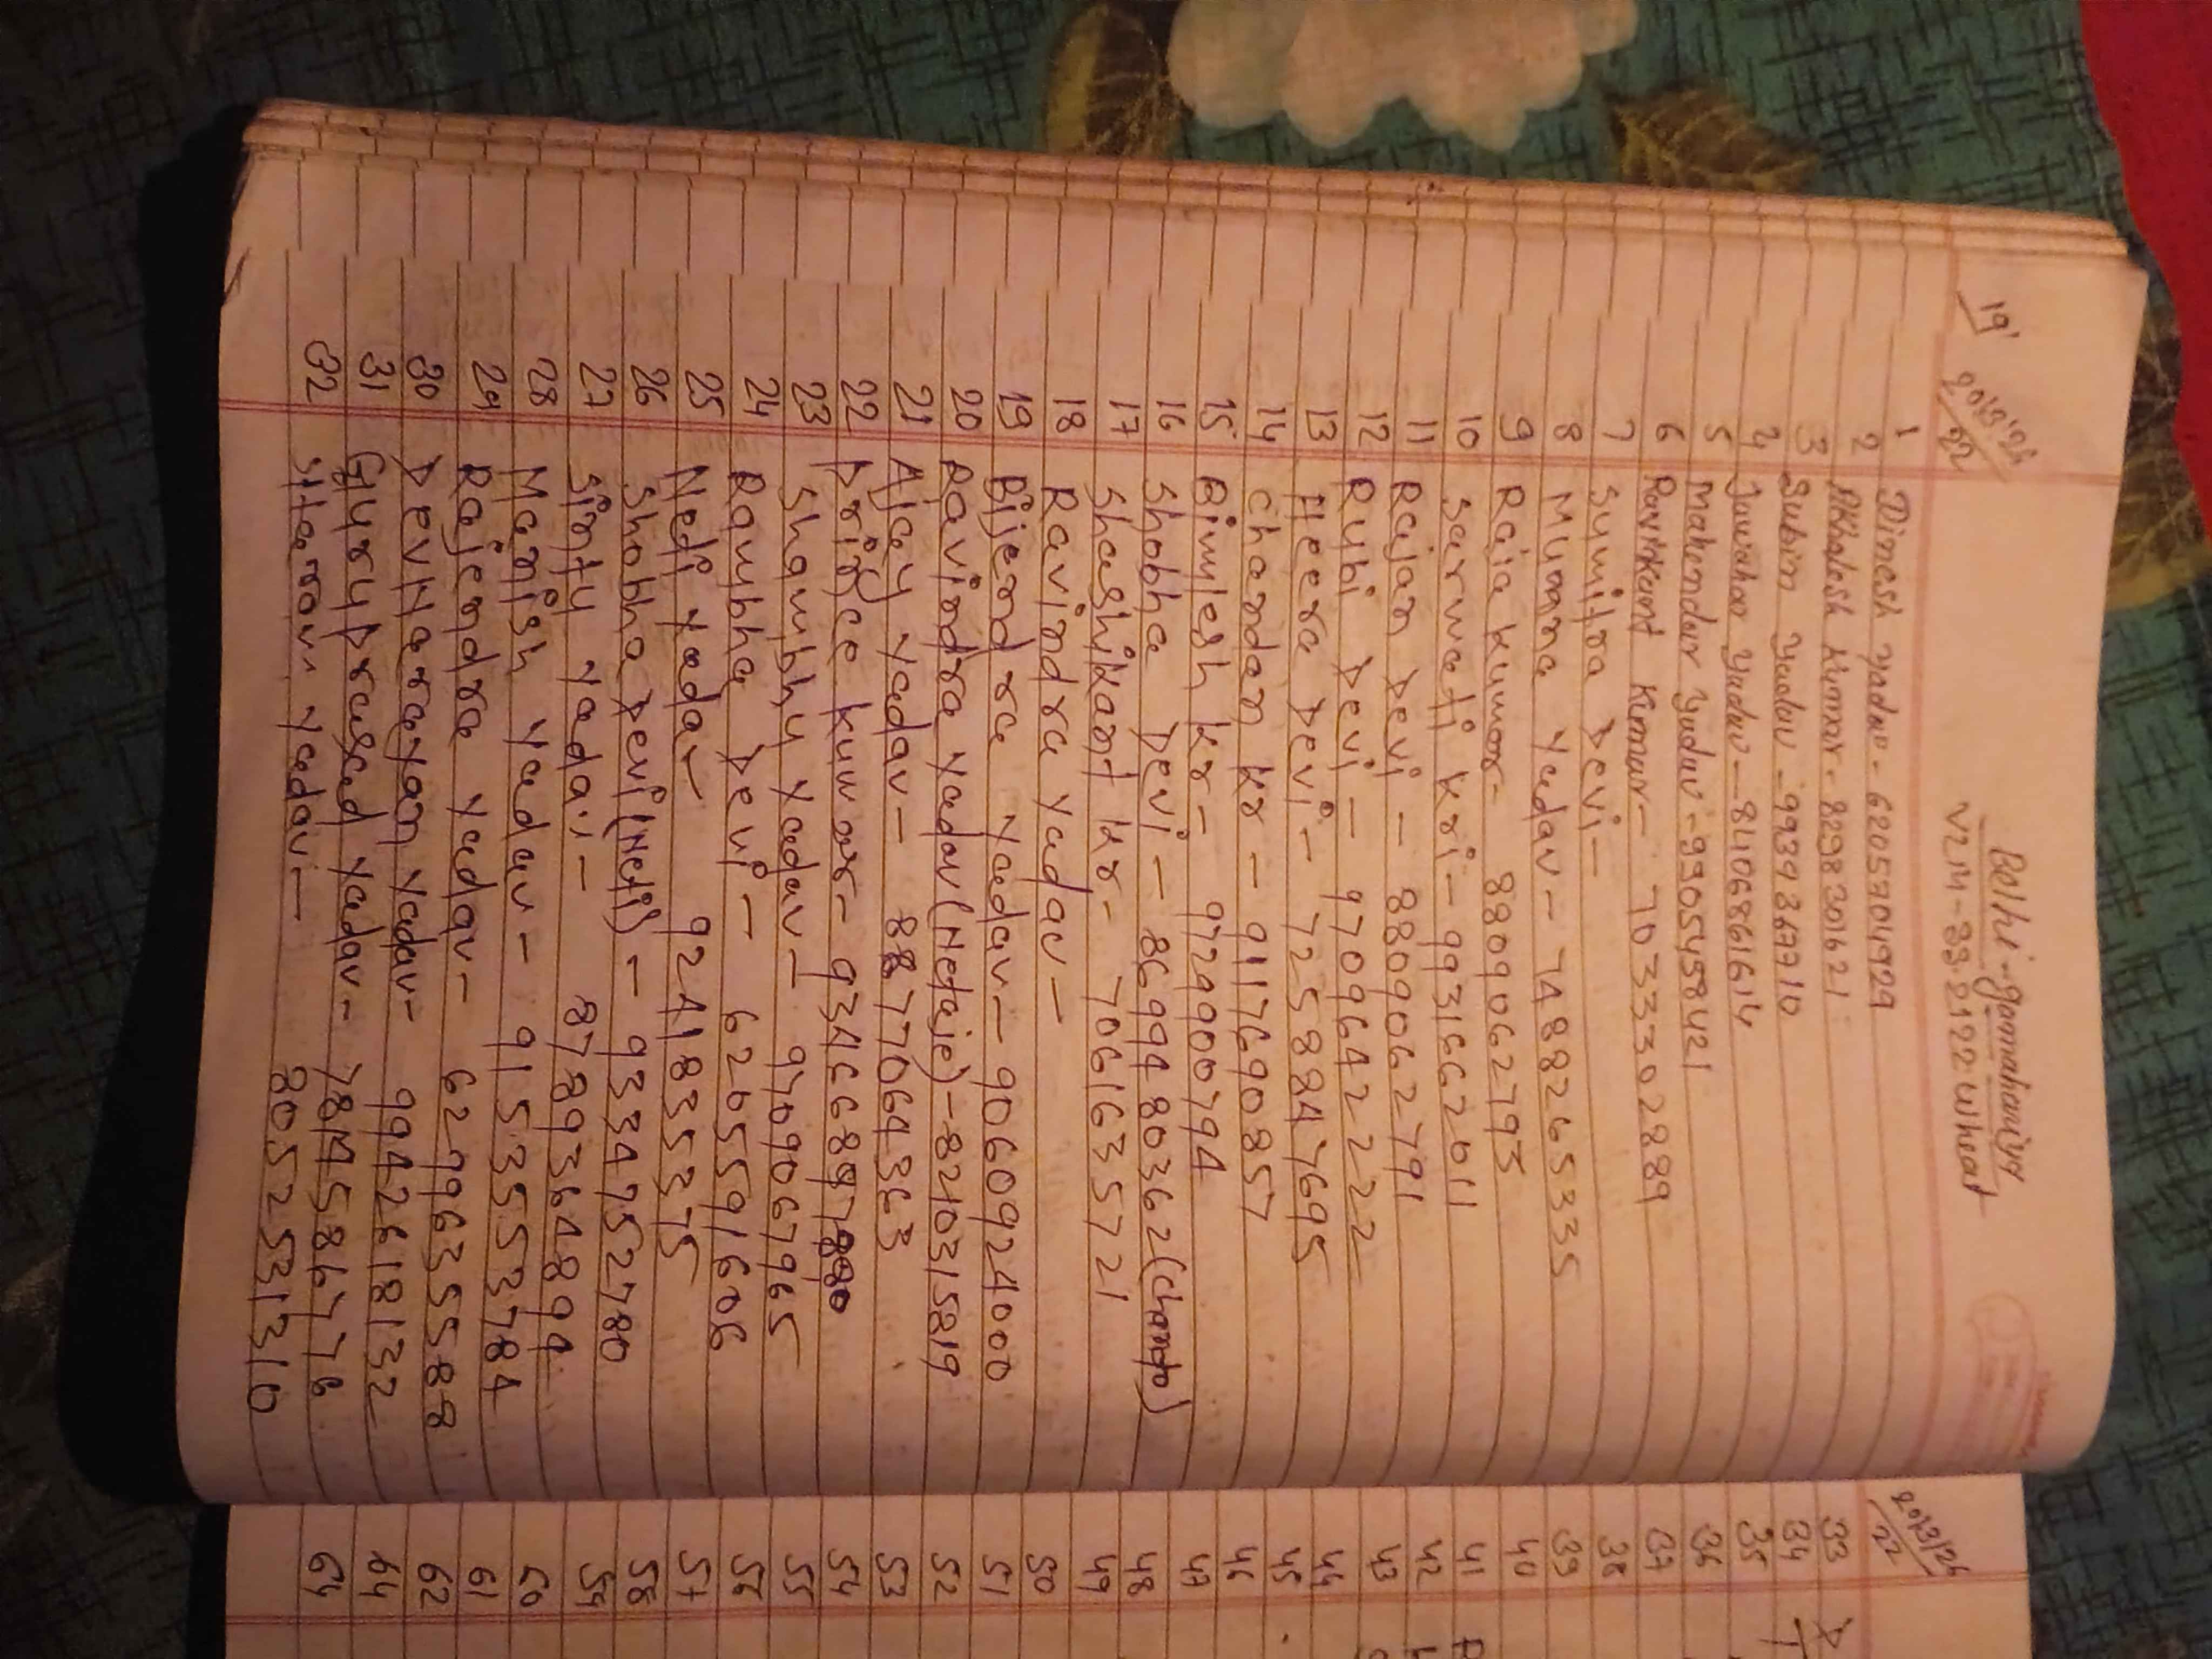 19'
20/3/26
22
Belhi - gamahariya
V2M-33.2122 Wheat
1 Dinesh Yadav - 6205704929
2 Akhalesh Kumar - 8298301621
3 Subin Yadav - 9939867710
4 Jawahar Yadav - 8406861614
5 Mahendar Yadav - 9905458421
6 Ravikant Kumar - 7033302889
7 Sumitra Devi -
8 Munna Yadav - 7488265335
9 Raja Kumar - 8809062793
10 Sarwati Kri - 9931662011
11 Rajan Devi - 8809062791
12 Rubi Devi - 9709642222
13 Heera Devi - 7258847695
14 Chandan Kr - 9117690857
15 Bimlesh Kr - 9729000794
16 Shobha Devi - 8699480362 (Chanto)
17 Shashikant Kr - 7061635721
18 Ravindra Yadav -
19 Bijendra Yadav - 9060924000
20 Ravindra Yadav (Netaje) - 8210315819
21 Ajay Yadav - 8877064363
22 Prince Kumar - 9346689780
23 Shambhu Yadav - 9709067965
24 Rambha Devi - 6205591606
25 Nedi Yadav 9241835375
26 Shobha Devi (Neti) - 9334752780
27 Sintu Yadav - 8789364894
28 Manish Yadav - 9153553784
29 Rajendra Yadav - 6299635588
30 Devnarayan Yadav - 9942618132
31 Guruprasad Yadav - 784586776
32 Sitaram Yadav - 8052531310
20/3/26
22
33
34
35
36
37
38
39
40
41
42
43
44
45
46
47
48
49
50
51
52
53
54
55
56
57
58
59
60
61
62
64
64